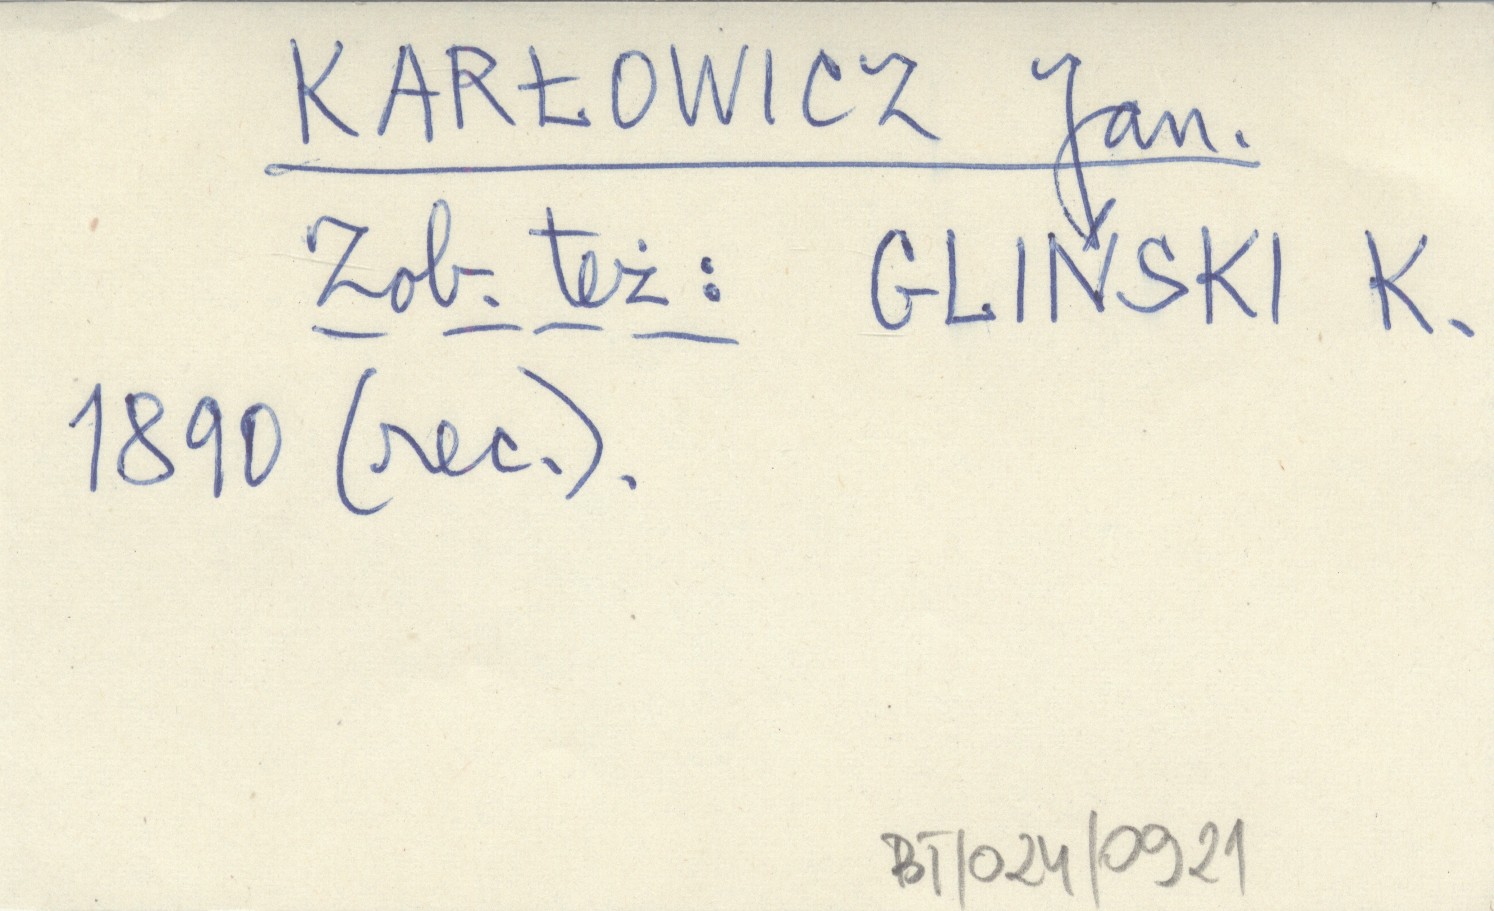 KARŁOWICZ Jan.
Zob. też: GLIŃSKI K.
1890 (rec.).
BT/024/0921